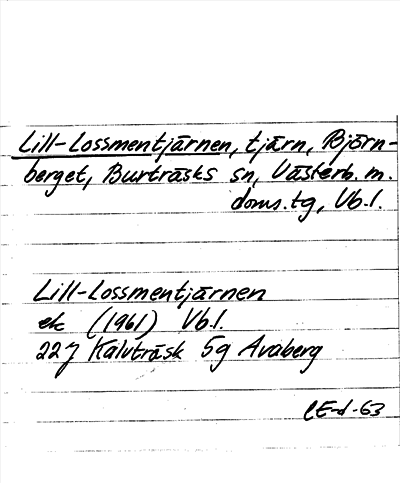 Lill-Lossmentjärnen, tjärn, Björn-
berget, Burträsks sn, Västerb. m.
doms.tg, Vb.l.
Lill-Lossmentjärnen
ek (1961) Vb.l.
22J Kalvträsk 5g Avaberg